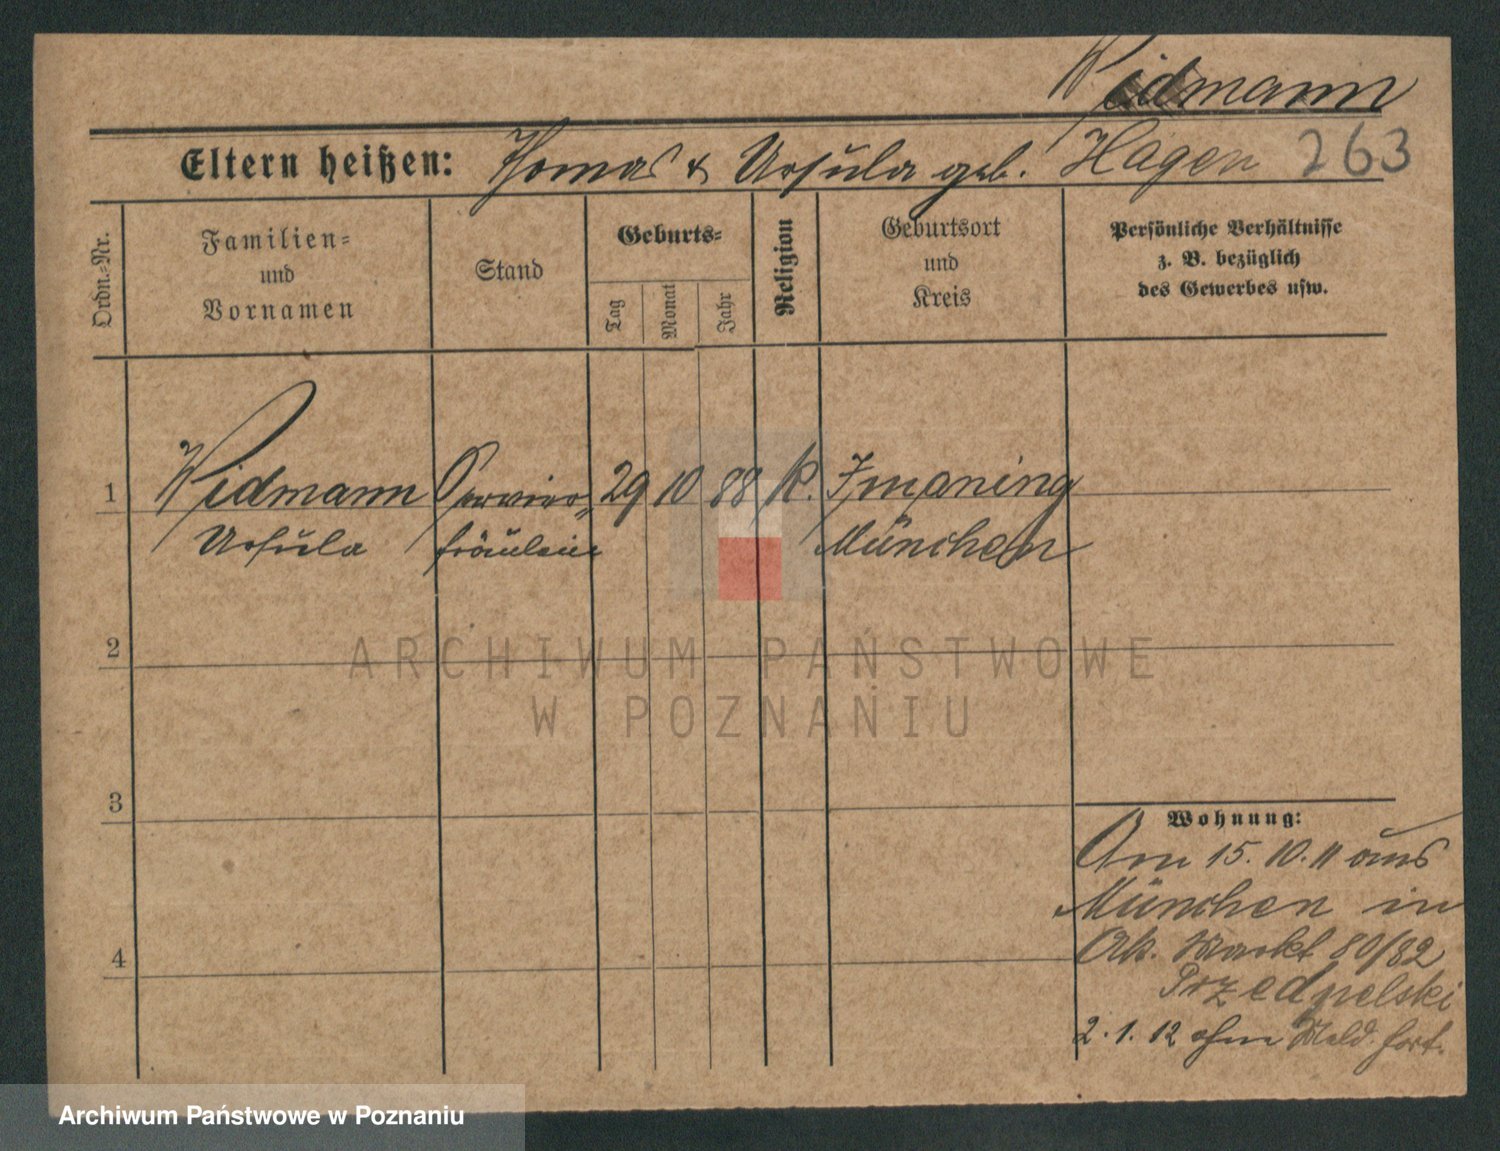 Widmann
Eltern heißen: Thomas & Ursula geb. Hagen 263
Ordn.-Nr.
Familien-
und
Vornamen
Stand
Geburts-
Tag
Monat
Jahr
Religion
Geburtsort
und
Kreis
Persönliche Verhältnisse
z. B. bezüglich
des Gewerbes usw.
1 Widmann Servier- 29 10 88 k. Ismaning
Ursula fräulein München
2
3
4
Wohnung:
Am 15. 10. 11 aus
München in
Alt. Markt 80/82
Przedpelski
2. 1. 12 ohne Meld. fort.
ARCHIWUM PAŃSTWOWE
W POZNANIU
Archiwum Państwowe w Poznaniu